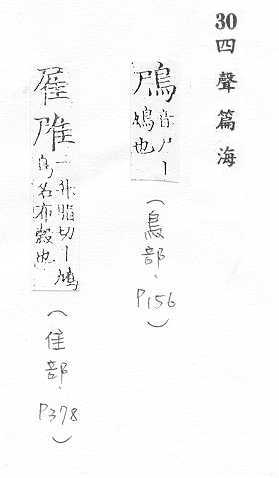 30 四聲篇海
鳲 音尸丨
鳩也
(鳥部.
P156)
二升脂切丨鳩
鳥名布穀也
(隹部.
P378)